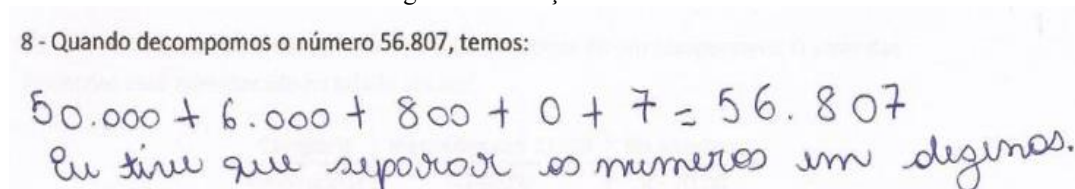 8 - Quando decompomos o número 56.807, temos:
50.000 + 6.000 + 800 + 0 + 7 = 56.807
Eu tive que separar os numeros em dezenas.